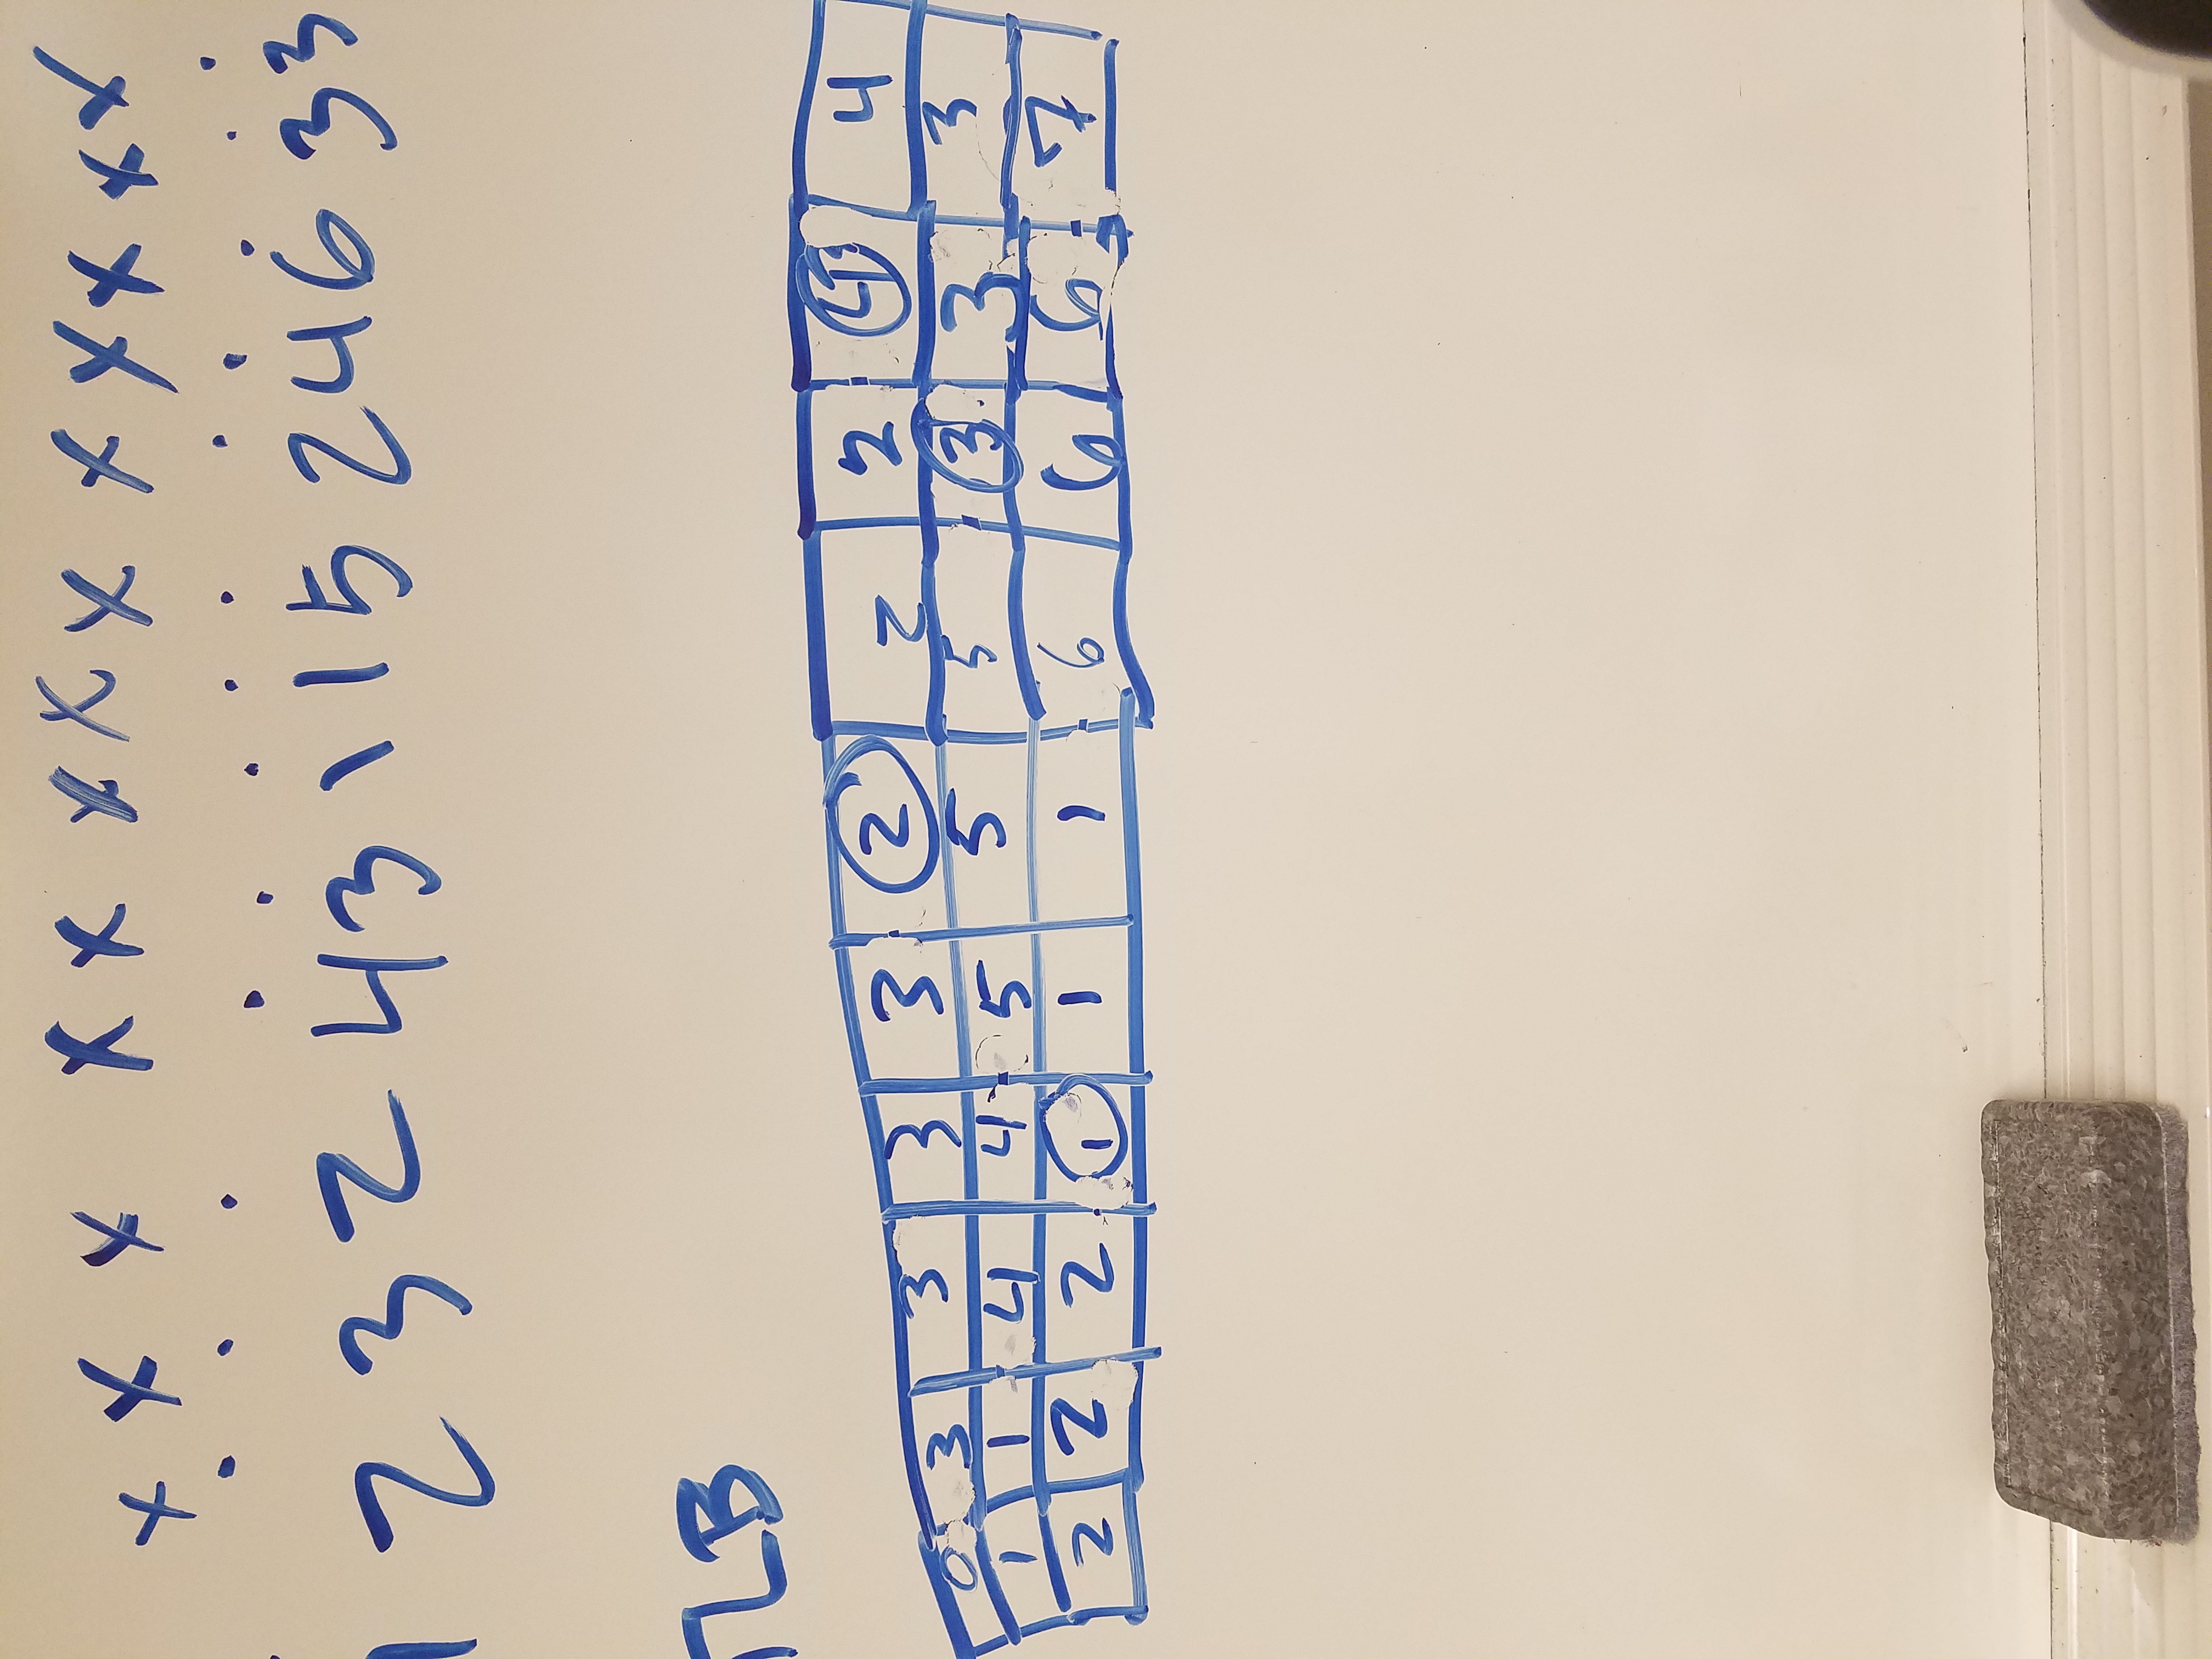 x x x x x x x x x x x x x
1 2 3 2 4 3 1 1 5 2 4 6 3 3
TLB
0 3 3 3 3 2 2 2 4 4
1 1 4 4 5 5 5 3 3 3
2 2 2 1 1 1 6 6 6 7